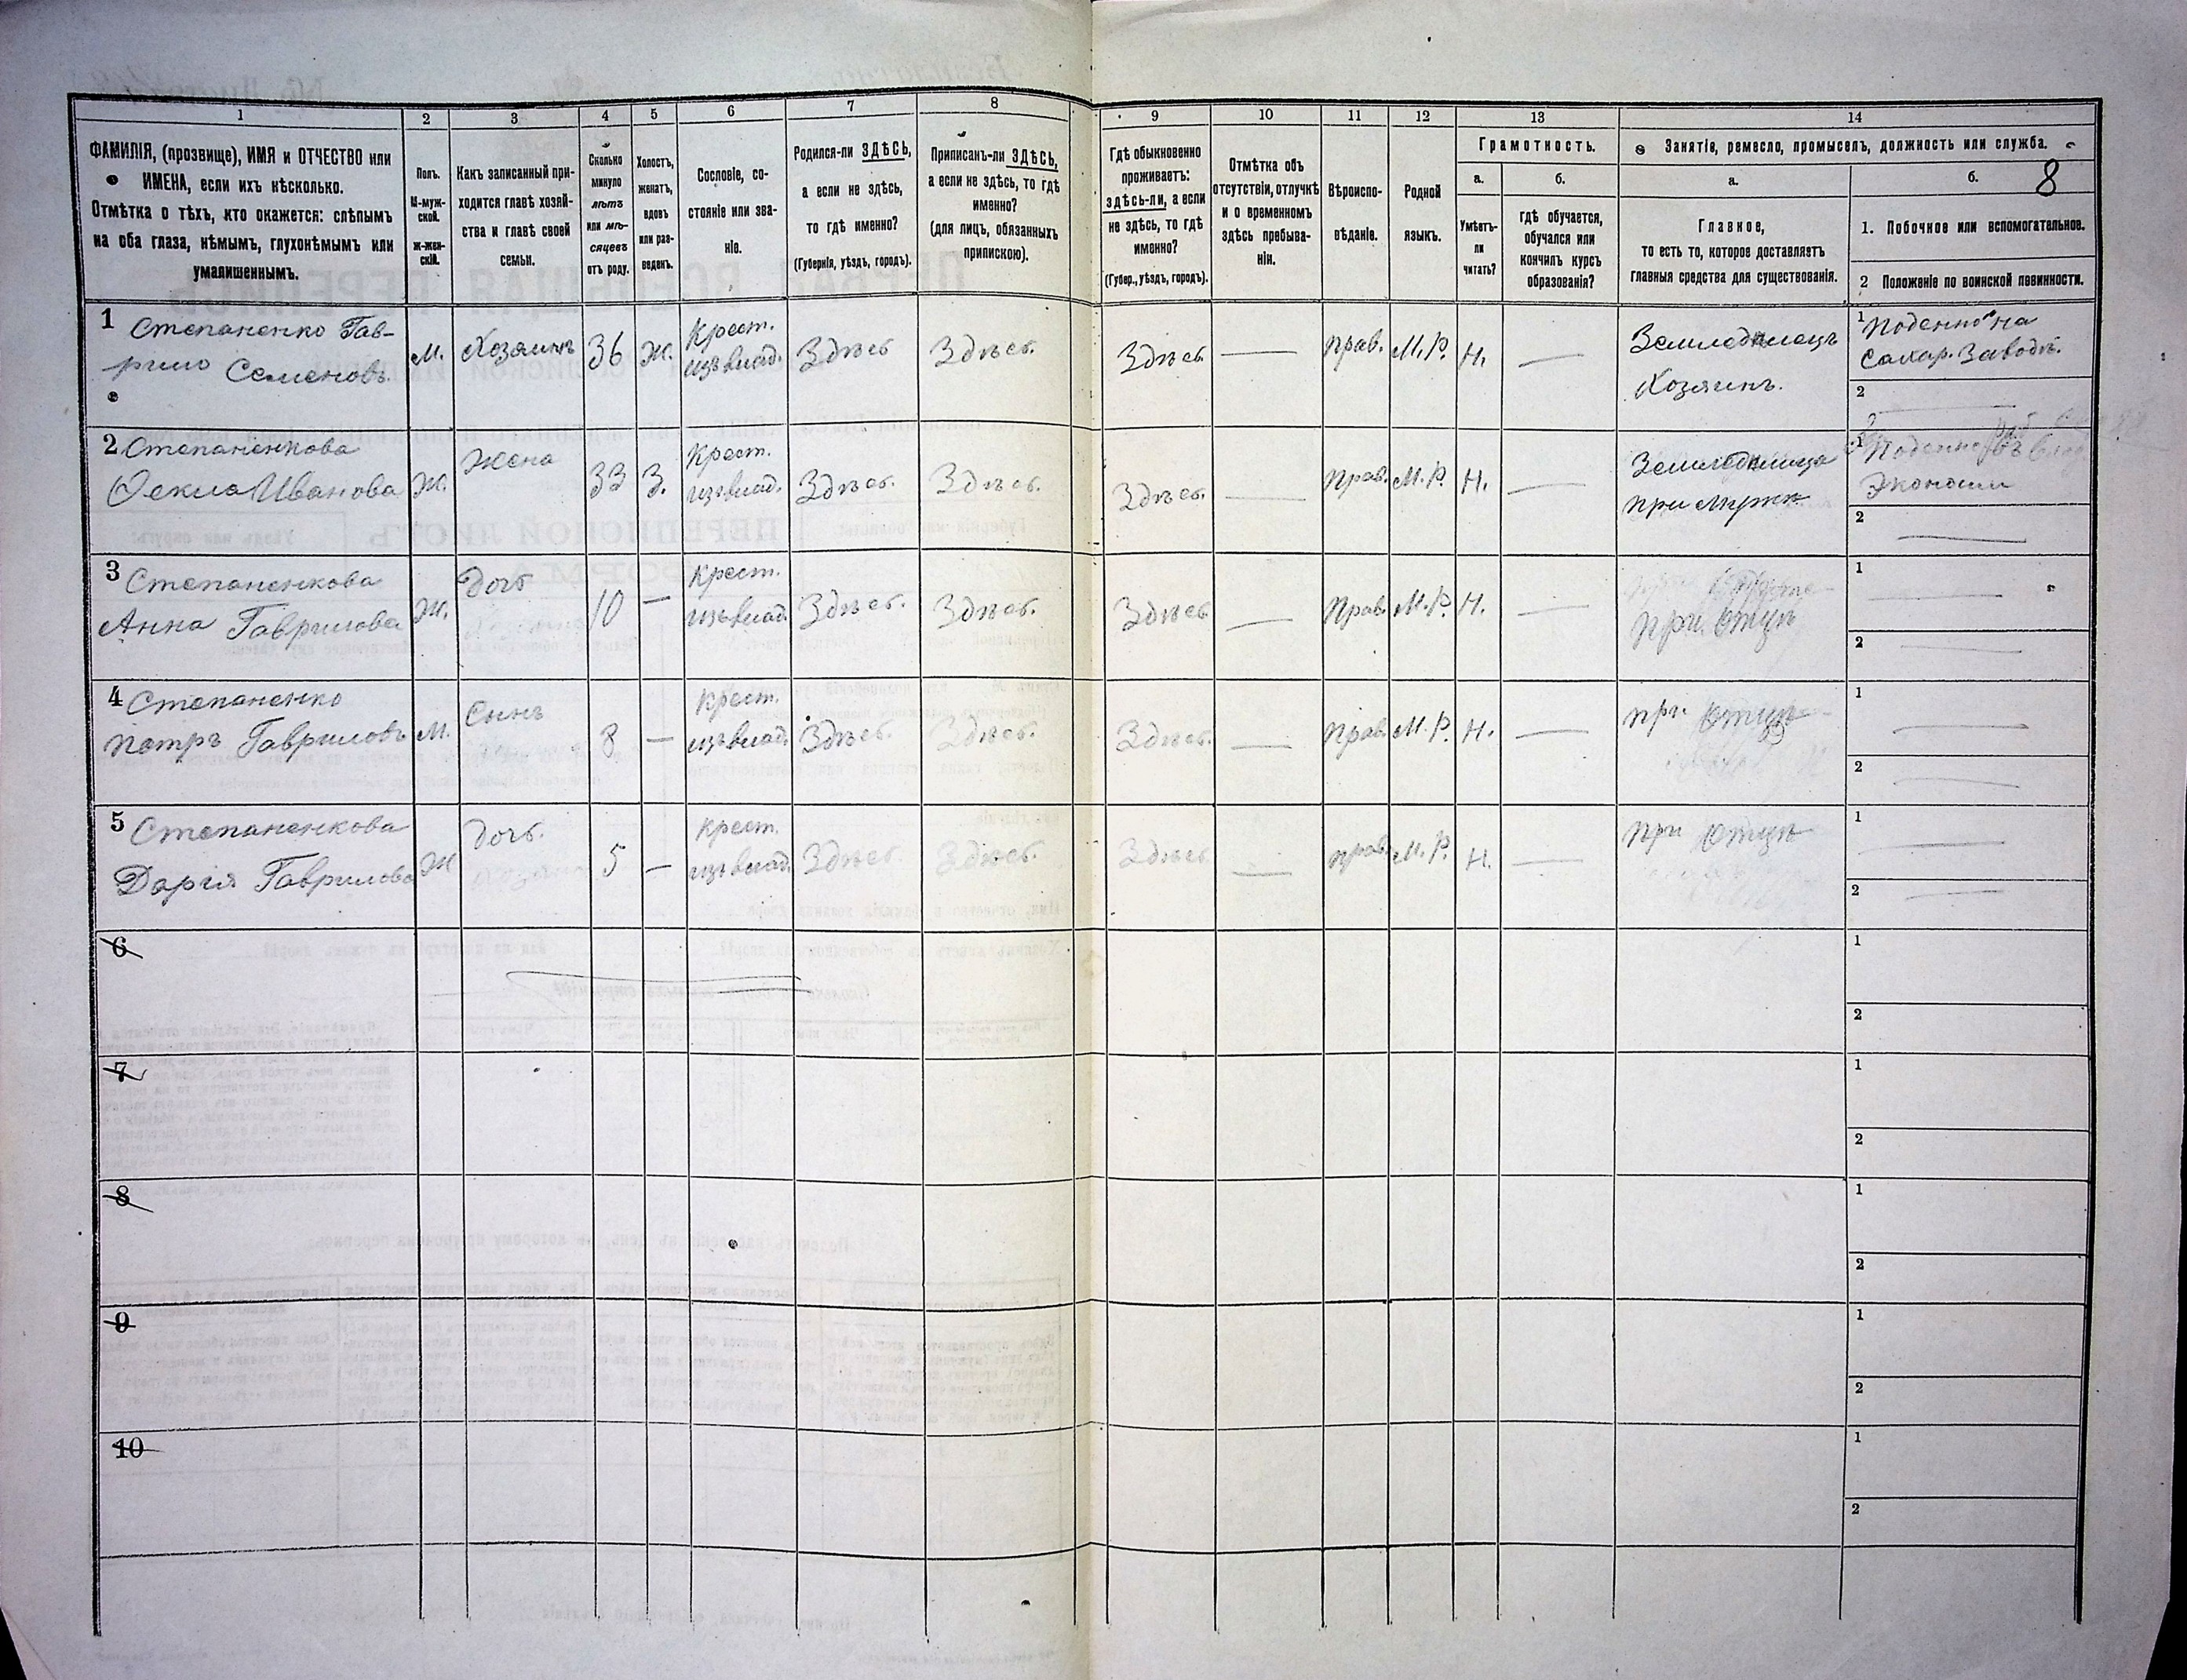 1
2
3
4
5
6
7
8
9
10
11
12
13
14
ФАМИЛІЯ, (прозвище), ИМЯ и ОТЧЕСТВО или
ИМЕНА, если ихъ нѣсколько.
Отмѣтка о тѣхъ, кто окажется: слѣпымъ
на оба глаза, нѣмымъ, глухонѣмымъ или
умалишеннымъ.
Полъ.
М-муж-
ской.
Ж-жен-
скій.
Какъ записанный при-
ходится главѣ хозяй-
ства и главѣ своей
семьи.
Сколько
минуло
лѣтъ
или мѣ-
сяцевъ
отъ роду.
Холостъ,
женатъ,
вдовъ
или раз-
веденъ.
Сословіе, со-
стояніе или зва-
ніе.
Родился-ли ЗДѢСЬ,
а если не здѣсь,
то гдѣ именно?
(Губернія, уѣздъ, городъ).
Приписанъ-ли ЗДѢСЬ,
а если не здѣсь, то гдѣ
именно?
(для лицъ, обязанныхъ
припискою).
Гдѣ обыкновенно
проживаетъ:
здѣсь-ли, а если
не здѣсь, то гдѣ
именно?
(Губер., уѣздъ, городъ).
Отмѣтка объ
отсутствіи, отлучкѣ
и о временномъ
здѣсь пребыва-
ніи.
Вѣроиспо-
вѣданіе.
Родной
языкъ.
Грамотность.
а.
Умѣетъ-
ли
читать?
б.
гдѣ обучается,
обучался или
кончилъ курсъ
образованія?
Занятіе, ремесло, промыселъ, должность или служба.
8
а.
Главное,
то есть то, которое доставляетъ
главныя средства для существованія.
б.
1. Побочное или вспомогательное.
2 Положеніе по воинской повинности.
1 Степаненко Гав-
рило Семеновъ
М.
Хозяинъ
36
Ж.
Крест.
изъ влад.
Здѣсь
Здѣсь.
Здѣсь
—
Прав.
М. Р.
Н.
—
Земледѣлецъ
Хозяинъ.
1 Поденно на
Сахар. Заводѣ.
2
2 Степаненкова
Ѳекла Иванова
Ж.
Жена
33
З.
Крест.
изъ влад.
Здѣсь.
Здѣсь.
Здѣсь.
—
Прав.
М. Р.
Н.
—
Земледѣлица
при мужѣ
1 Поденно въ
Экономіи
2 —
3 Степаненкова
Анна Гаврилова
Ж.
Дочь
10
—
Крест.
изъ влад.
Здѣсь.
Здѣсь.
Здѣсь
—
Прав.
М. Р.
Н.
—
при Отцѣ
1 —
2 —
4 Степаненко
Петръ Гавриловъ
М.
Сынъ
8
—
Крест.
изъ влад.
Здѣсь.
Здѣсь.
Здѣсь.
—
Прав.
М. Р.
Н.
—
при Отцѣ
1 —
2 —
5 Степаненкова
Дарія Гаврилова
Ж
Дочь.
5
—
Крест.
изъ влад.
Здѣсь.
Здѣсь.
Здѣсь
—
прав.
М. Р.
Н.
—
при Отцѣ
1 —
2 —
6
1
2
7
1
2
8
1
2
9
1
2
10
1
2